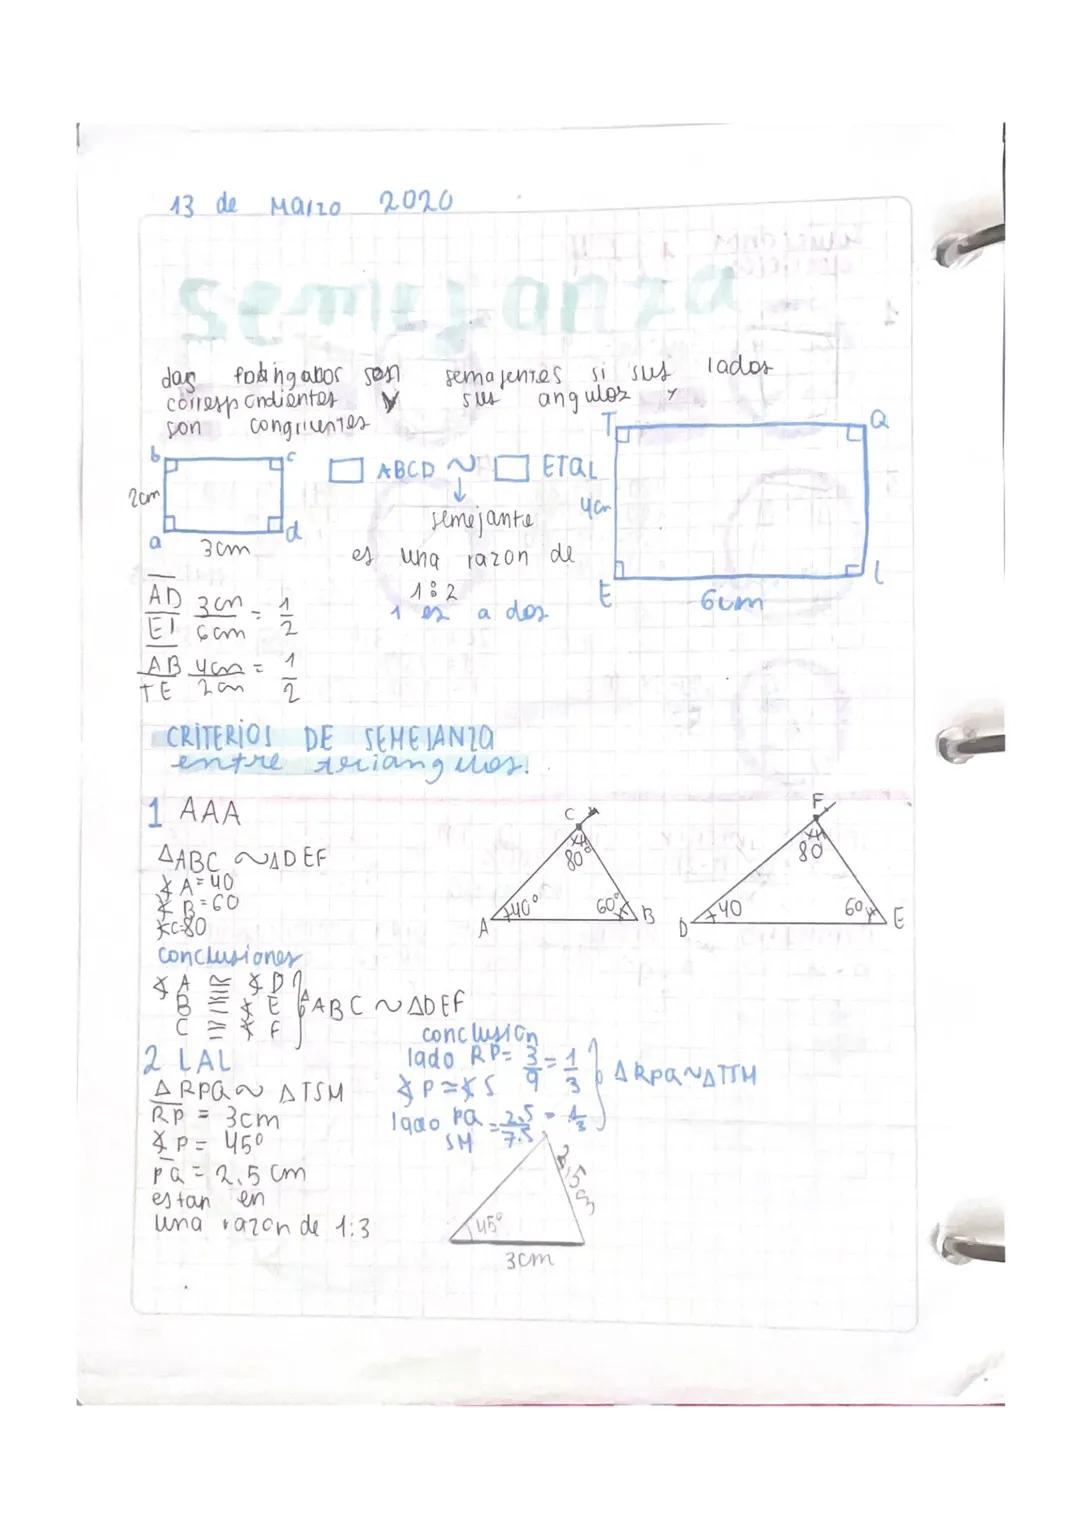 13 de Marzo 2020
semejanza
dos son semejentes si sus lados
correspondientes y sus angulos y
son congruentes
b c
2cm
a d
3cm
▭ ABCD ~ ▭ ETQL
↓
semejante
es una razon de
1:2
1 es a dos
T Q
4cm
E L
6cm
AD 3cm = 1
EI 6cm 2
AB 4cm = 1
TE 2cm 2
CRITERIOS DE SEMEJANZA
entre triangulos.
1 AAA
△ABC ~ △DEF
∡ A=40
∡ B=60
∡C=80
conclusiones
∡ A ≅ ∡ D
B ≅ ∡ E
C ≅ ∡ F
} △ABC ~ △DEF
C
80°
A 40° 60° B
F
80
D 40 60 E
2 LAL
△RPQ ~ △TSM
RP = 3cm
∡ P = 45°
PQ = 2.5 cm
estan en
una razon de 1:3
conclusion
lado RP = 3/9 = 1/3
∡P ≅ ∡S
lado PQ/SM = 2.5/7.5 = 1/3
} △RPQ ~ △TTM
45°
3cm